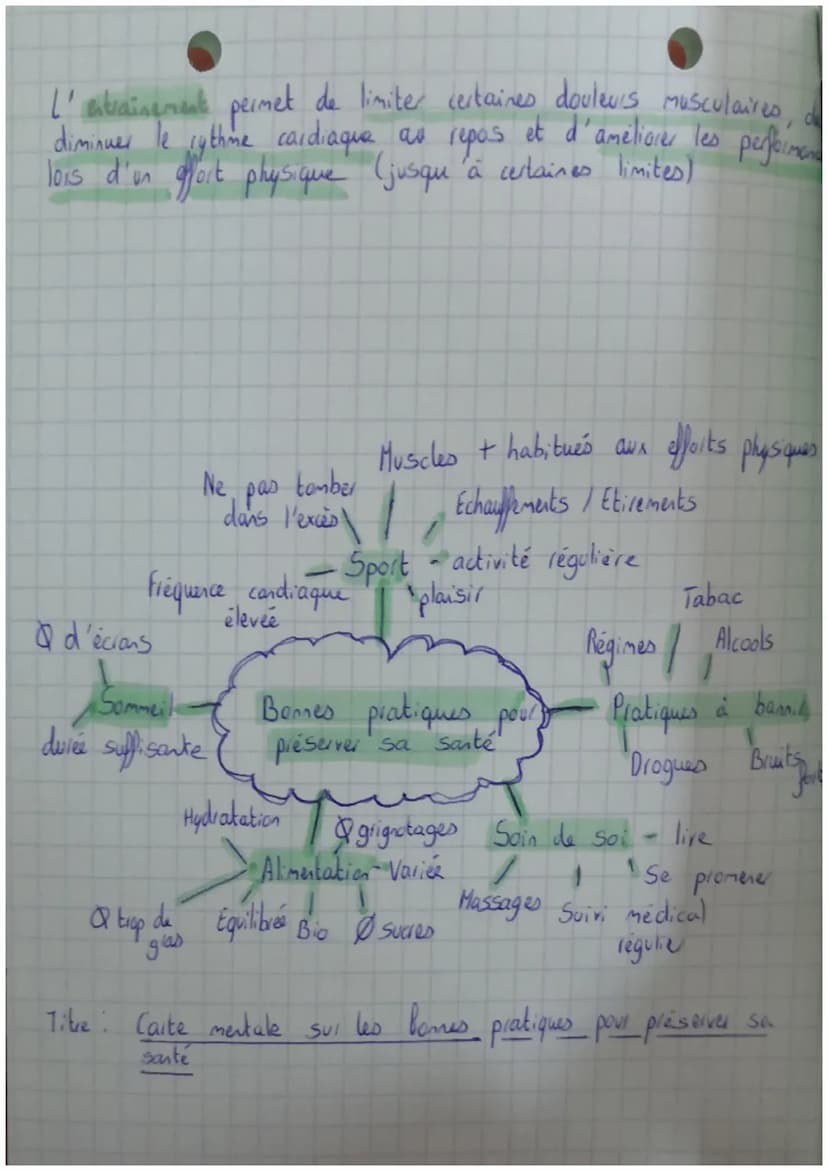 L'entraînement permet de limiter certaines douleurs musculaires, d
diminuer le rythme cardiaque au repos et d'améliorer les performan
lors d'un effort physique (jusqu'à certaines limites)
Muscles + habitués aux efforts physiques
Ne pas tomber
dans l'excès
Echauffements / Etirements
Sport - activité régulière
Fréquence cardiaque
élevée
plaisir
Tabac
Ø d'écrans
Régimes
Alcools
Sommeil
Bonnes pratiques pour
préserver sa santé
Pratiques à bannir
durée suffisante
Drogues
Bruits
fort
Hydratation
Ø grignotages
Soin de soi - lire
Alimentation - Variée
Se promener
Massages
Suivi médical
régulier
Ø trop de
gras
Equilibrée
Bio
Ø sucres
Titre : Carte mentale sur les bonnes pratiques pour préserver sa
santé